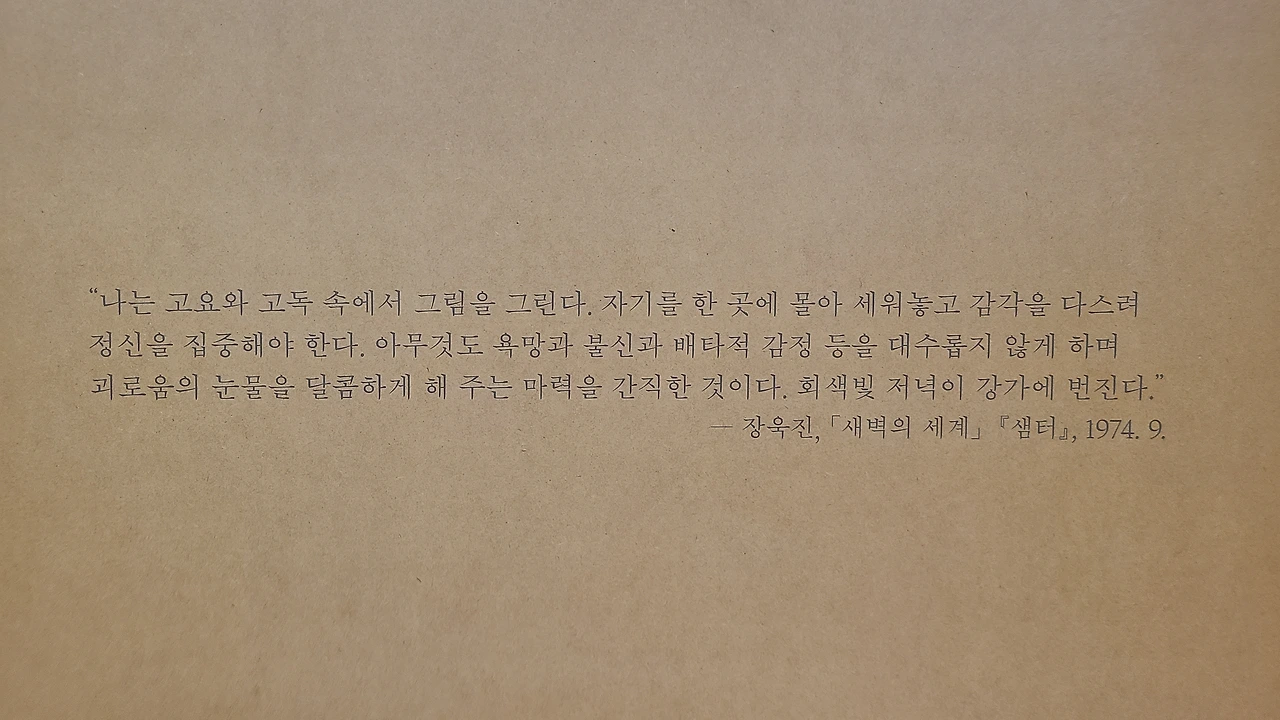 “나는 고요와 고독 속에서 그림을 그린다. 자기를 한 곳에 몰아 세워놓고 감각을 다스려
정신을 집중해야 한다. 아무것도 욕망과 불신과 배타적 감정 등을 대수롭지 않게 하며
괴로움의 눈물을 달콤하게 해 주는 마력을 간직한 것이다. 회색빛 저녁이 강가에 번진다.”
— 장욱진, 「새벽의 세계」 『샘터』, 1974. 9.